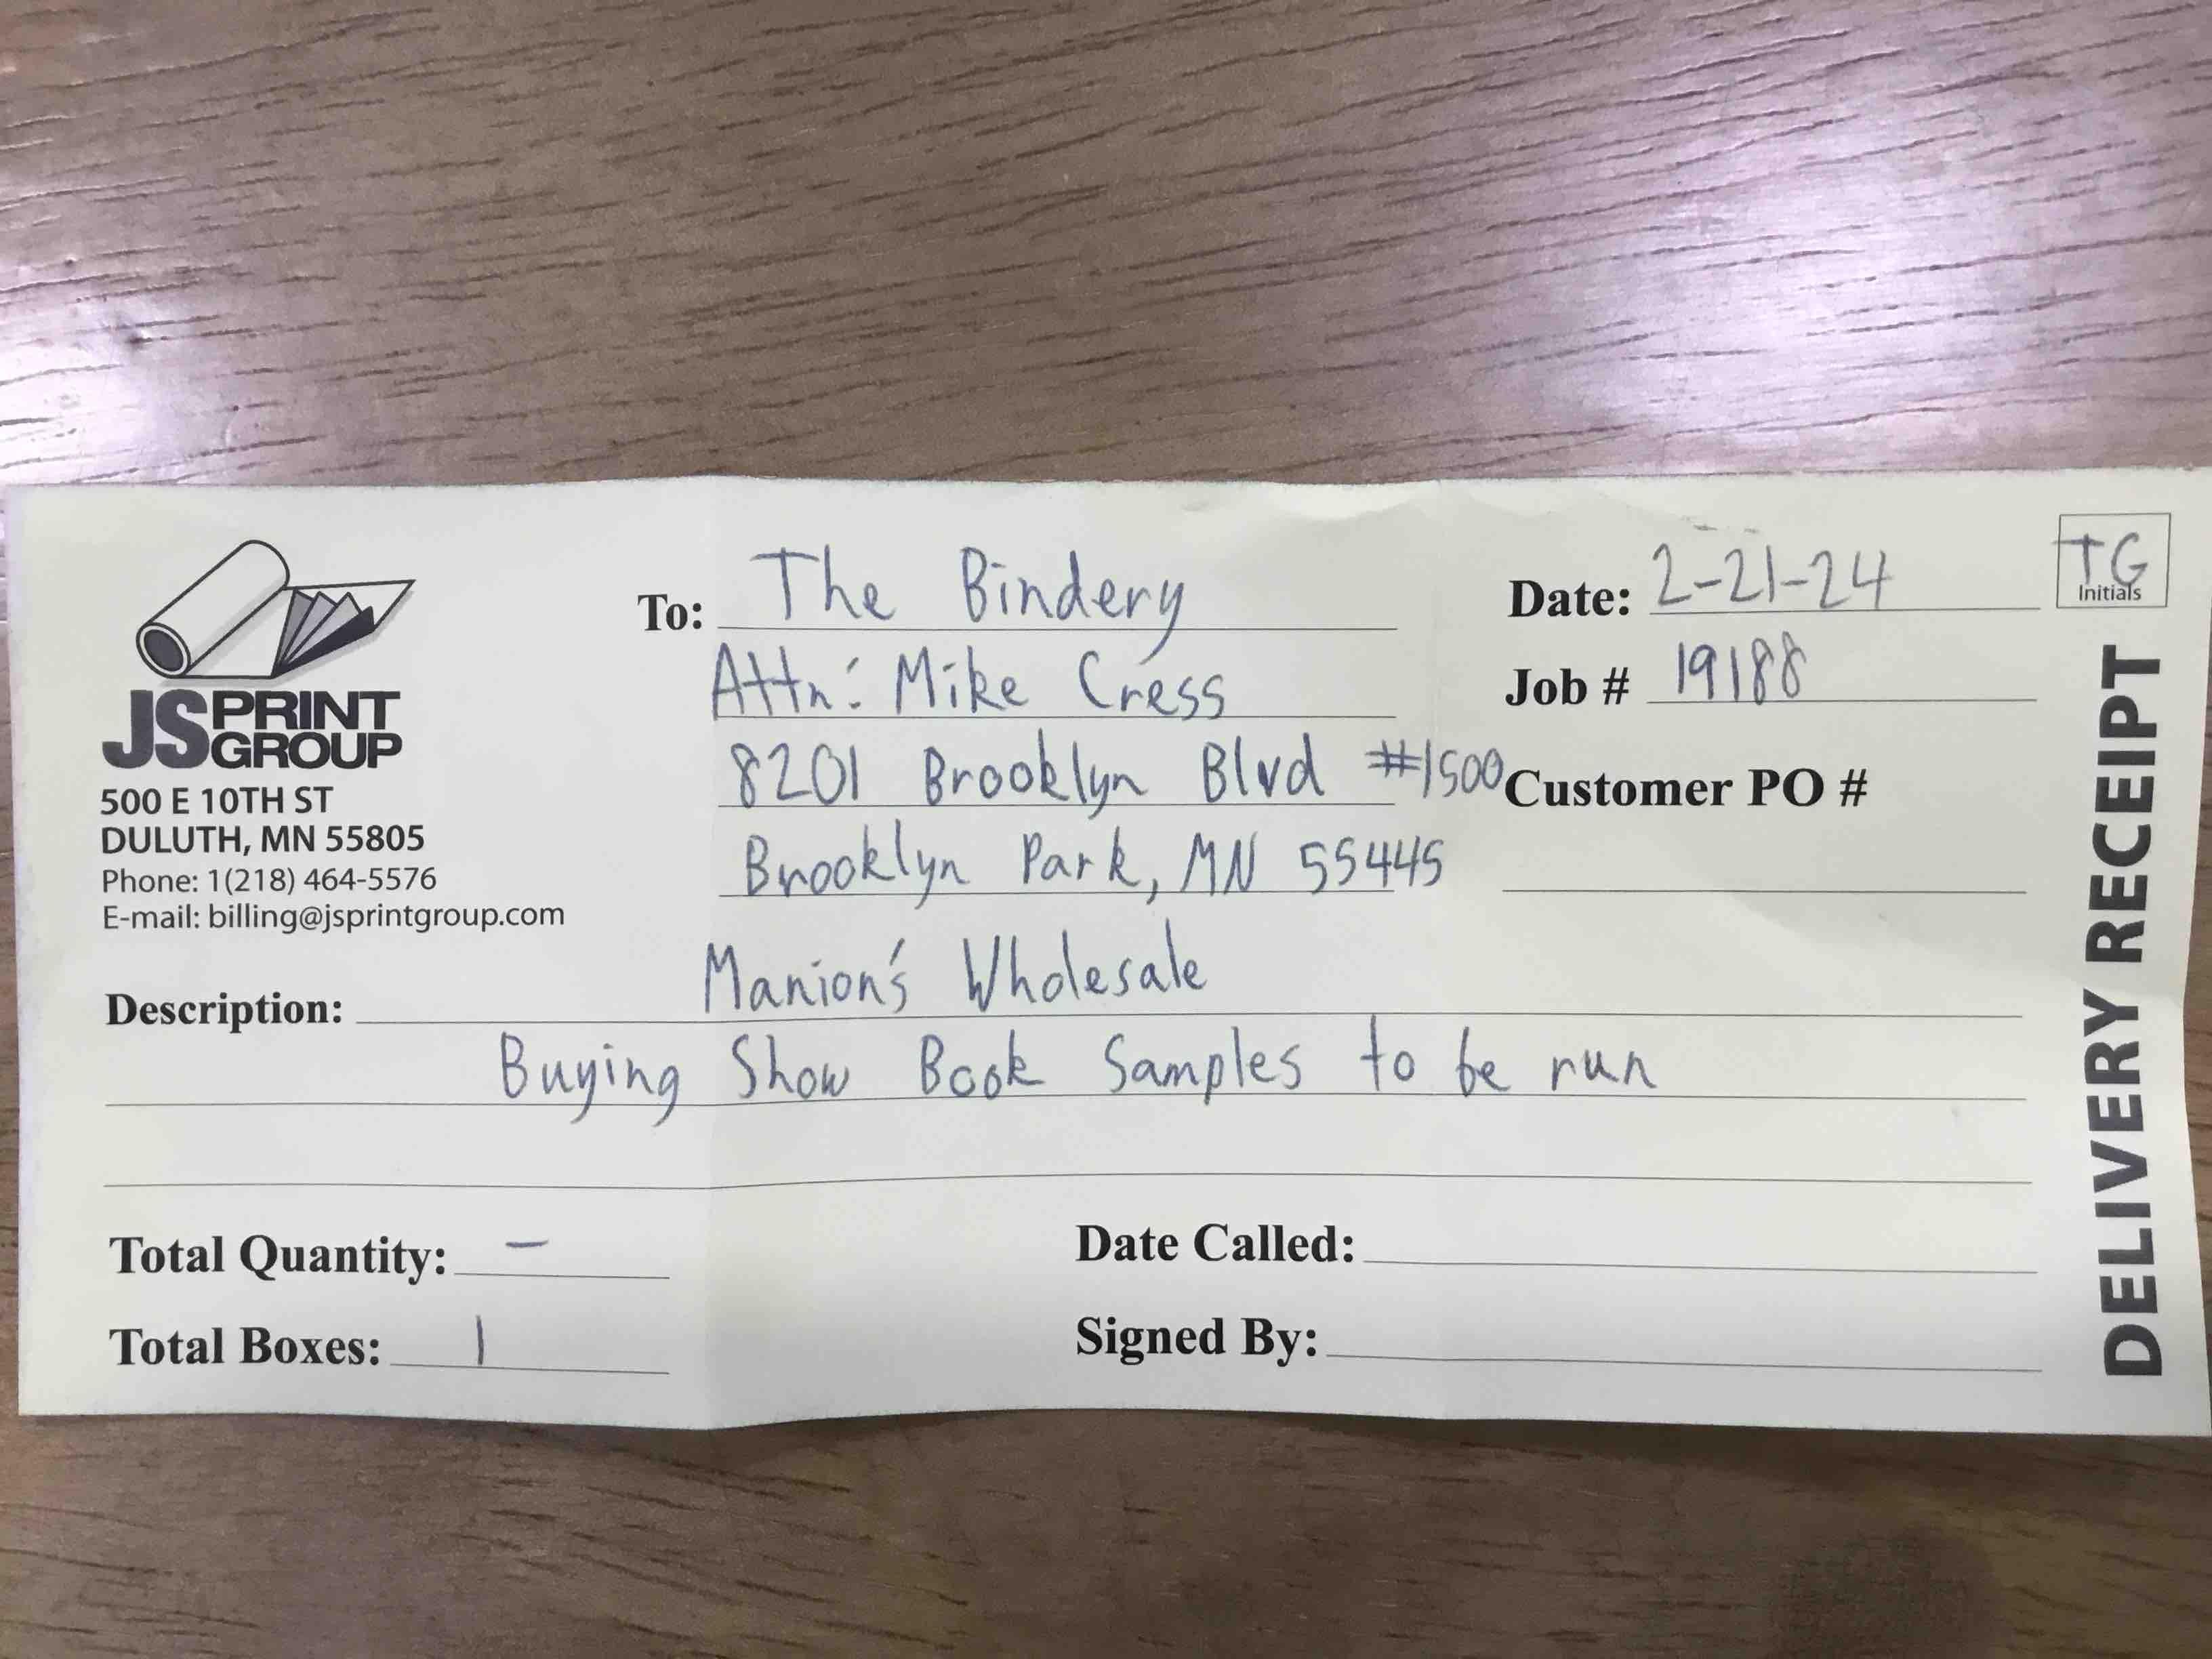 JS PRINT GROUP
500 E 10TH ST
DULUTH, MN 55805
Phone: 1(218) 464-5576
E-mail: billing@jsprintgroup.com
To: The Bindery
Attn: Mike Cress
8201 Brooklyn Blvd #1500
Brooklyn Park, MN 55445
Date: 2-21-24
TG
Initials
Job # 19188
Customer PO #
Description: Manion's Wholesale
Buying Show Book Samples to be run
Total Quantity: –
Total Boxes: 1
Date Called:
Signed By:
DELIVERY RECEIPT